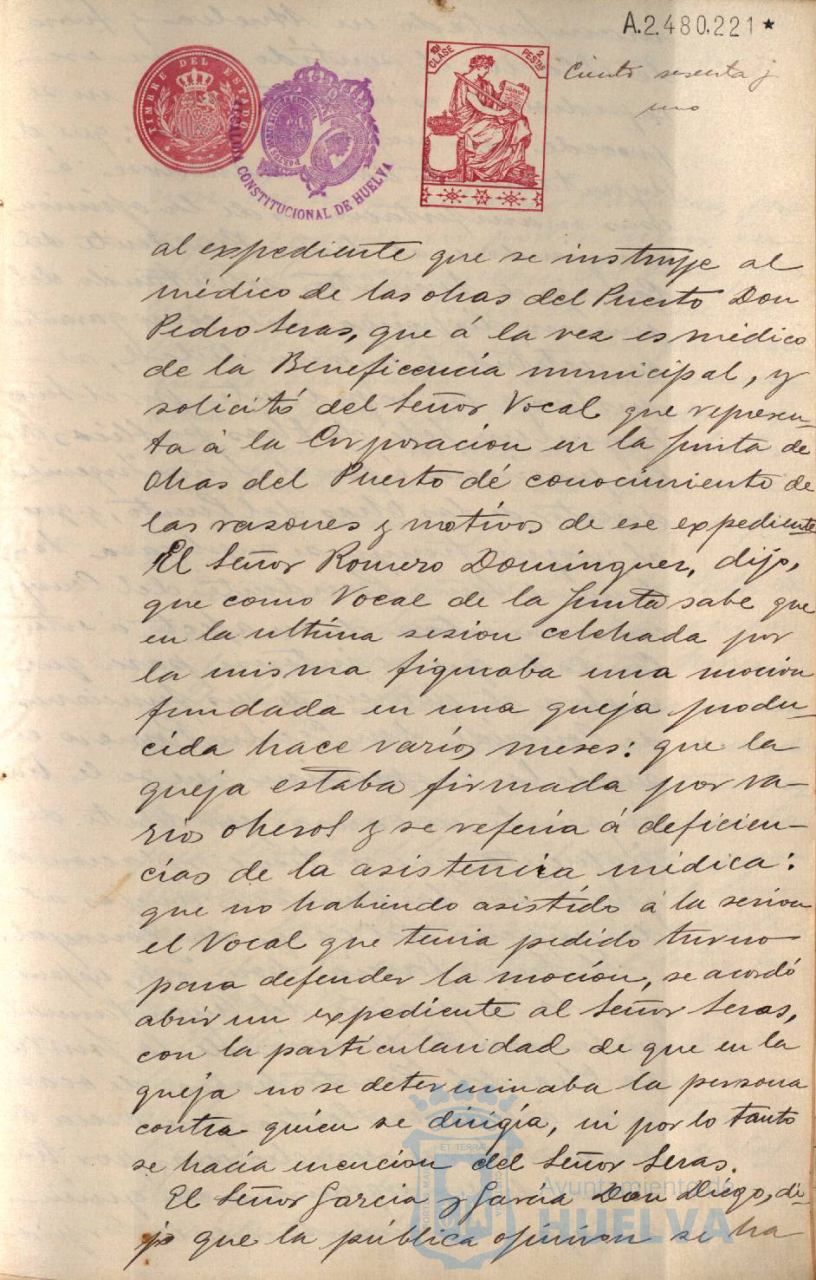 A.2.480.221★
TIMBRE DEL ESTADO
CONSTITUCIONAL DE HUELVA
10ª CLASE
2 PESTAS
Ciento sesenta y
uno
al expediente que se instruye al
médico de las obras del Puerto Don
Pedro Seras, que á la vez es médico
de la Beneficencia municipal, y
solicitó del Señor Vocal que represen-
ta á la Corporación en la Junta de
Obras del Puerto dé conocimiento de
las razones y motivos de ese expediente
El Señor Romero Dominguez, dijo,
que como Vocal de la Junta sabe que
en la ultima sesion celebrada por
la misma figuraba una mocion
fundada en una queja produ-
cida hace varios meses: que la
queja estaba firmada por va-
rios obreros y se referia á deficien-
cias de la asistencia médica:
que no habiendo asistido á la sesion
el Vocal que tenia pedido turno
para defender la moción, se acordó
abrir un expediente al Señor Seras,
con la particularidad de que en la
queja no se determinaba la persona
contra quien se dirigía, ni por lo tanto
se hacía mencion del Señor Seras.
El Señor Garcia y García Don Diego, di-
jo que la pública opinion se ha
Ayuntamiento de
HUELVA